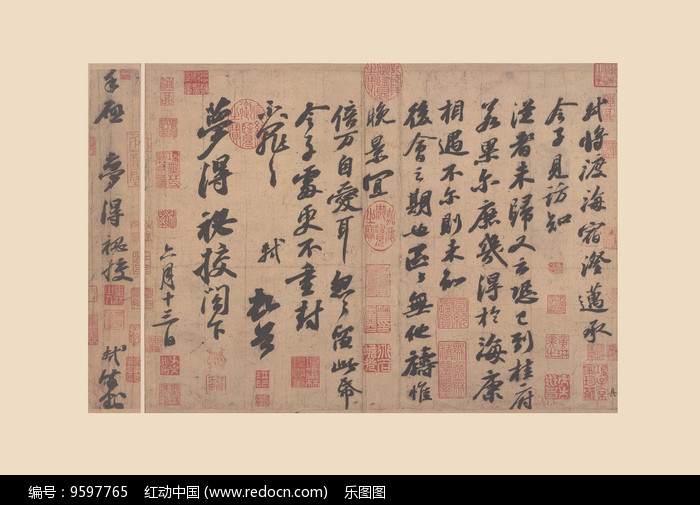 軾將渡海宿澄邁承
令子見訪知
從者未歸又云恐已到桂府
若果尔庶幾得於海康
相遇不尔則未知
後會之期也區區無他禱惟
晚景宜
倍万自愛耳忽忽留此帋
令子處更不重封
不罪〻 軾 頓首
夢得祕校閣下
六月十三日
手啟 夢得祕校 軾
编号：9597765 红动中国 (www.redocn.com) 乐图图